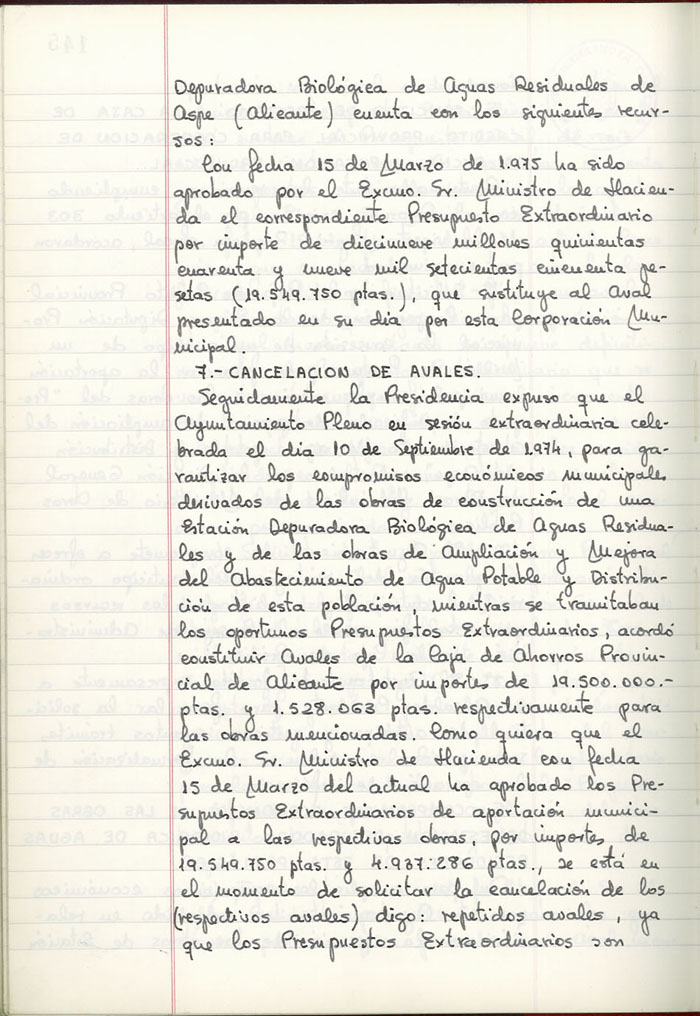 Depuradora Biológica de Aguas Residuales de
Aspe (Alicante) cuenta con los siguientes recur-
sos:
Con fecha 15 de Marzo de 1.975 ha sido
aprobado por el Excmo. Sr. Ministro de Hacien-
da el correspondiente Presupuesto Extraordinario
por importe de diecinueve millones quinientas
cuarenta y nueve mil setecientas cincuenta pe-
setas (19.549.750 ptas.), que sustituye al Aval
presentado en su día por esta Corporación Mu-
nicipal.
7.- CANCELACION DE AVALES.
Seguidamente la Presidencia expuso que el
Ayuntamiento Pleno en sesión extraordinaria cele-
brada el día 10 de Septiembre de 1.974, para ga-
rantizar los compromisos económicos municipales
derivados de las obras de construcción de una
Estación Depuradora Biológica de Aguas Residua-
les y de las obras de Ampliación y Mejora
del Abastecimiento de Agua Potable y Distribu-
ción de esta población, mientras se tramitaban
los oportunos Presupuestos Extraordinarios, acordó
constituir Avales de la Caja de Ahorros Provin-
cial de Alicante por importes de 19.500.000.-
ptas. y 1.528.063 ptas. respectivamente para
las obras mencionadas. Como quiera que el
Excmo. Sr. Ministro de Hacienda con fecha
15 de Marzo del actual ha aprobado los Pre-
supuestos Extraordinarios de aportación munici-
pal a las respectivas obras, por importes de
19.549.750 ptas. y 4.937.286 ptas., se está en
el momento de solicitar la cancelación de los
(respectivos avales) digo: repetidos avales, ya
que los Presupuestos Extraordinarios son